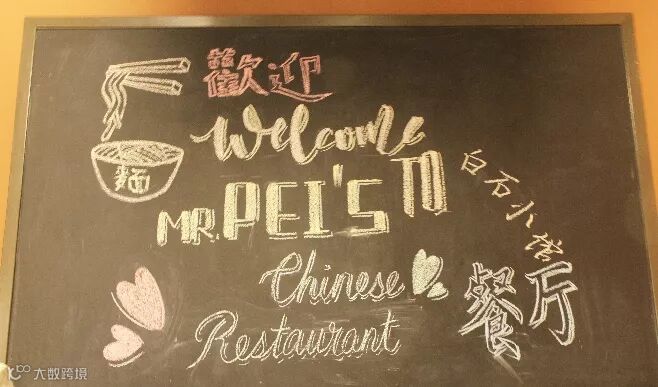 歡迎
Welcome
TO
MR. PEI'S
白石小馆
Chinese
餐厅
Restaurant
麵
大数跨境